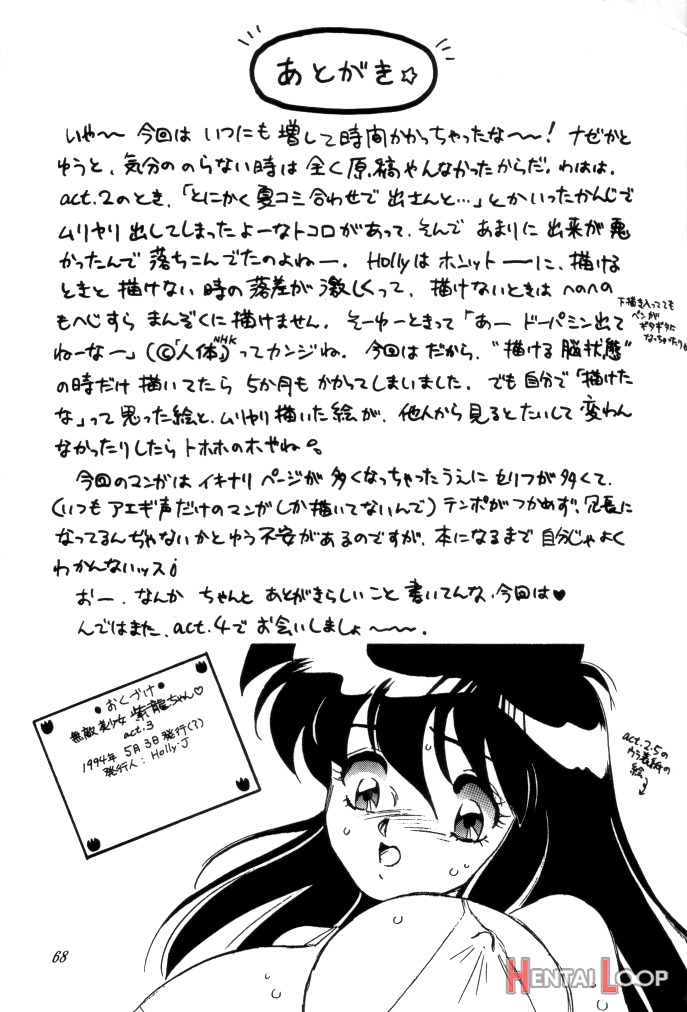 あとがき☆
いや〜〜 今回は いつにも 増して時間かかっちゃったな〜〜! ナゼかと
ゆうと、気分の のらない時は 全く原稿やんなかったからだ。わはは。
act.2のとき、「とにかく夏コミ合わせで 出さんと…」とかいったかんじで
ムリヤリ出してしまったよーなトコロがあって、そんで あまりに出来が悪
かったんで 落ちこんでたのよねー。 Hollyは ホニットーーに、描ける
ときと 描けない 時の落差が 激しくって、描けないときは へのへの
もへじすら まんぞくに描けません。そーゆーときって「あー ドーパミン出て
ねーなー」(©「人体」NHK)ってカンジね。今回は だから、"描ける脳状態"
の時だけ 描いてたら 5か月も かかってしまいました。でも自分で「描けた
な」って思った絵と、ムリヤリ描いた絵が、他人から見るとたいして 変わん
なかったりしたら トホホのホやね。
下描き入ってても
ペンが
ギタギタに
なっちゃったり
今回のマンガは イキナリ ページが 多くなっちゃったうえに セリフが多くて、
(いつも アエギ声だけのマンガしか描いてないんで)テンポがつかめず、冗長に
なってるんぢゃないかとゆう不安があるのですが、本になるまで 自分じゃよく
わかんないッス。
おー、なんか ちゃんと あとがきらしいこと 書いてんな、今回は♥
んではまた、act.4で お会いしましょ〜〜〜。
●おくづけ●
無敵美少女 紫龍ちゃん♡
act.3
1994年 5月3日発行(?)
発行人:Holly・J
act.2.5の
ウラ表紙の
絵
68
HENTAI LOOP